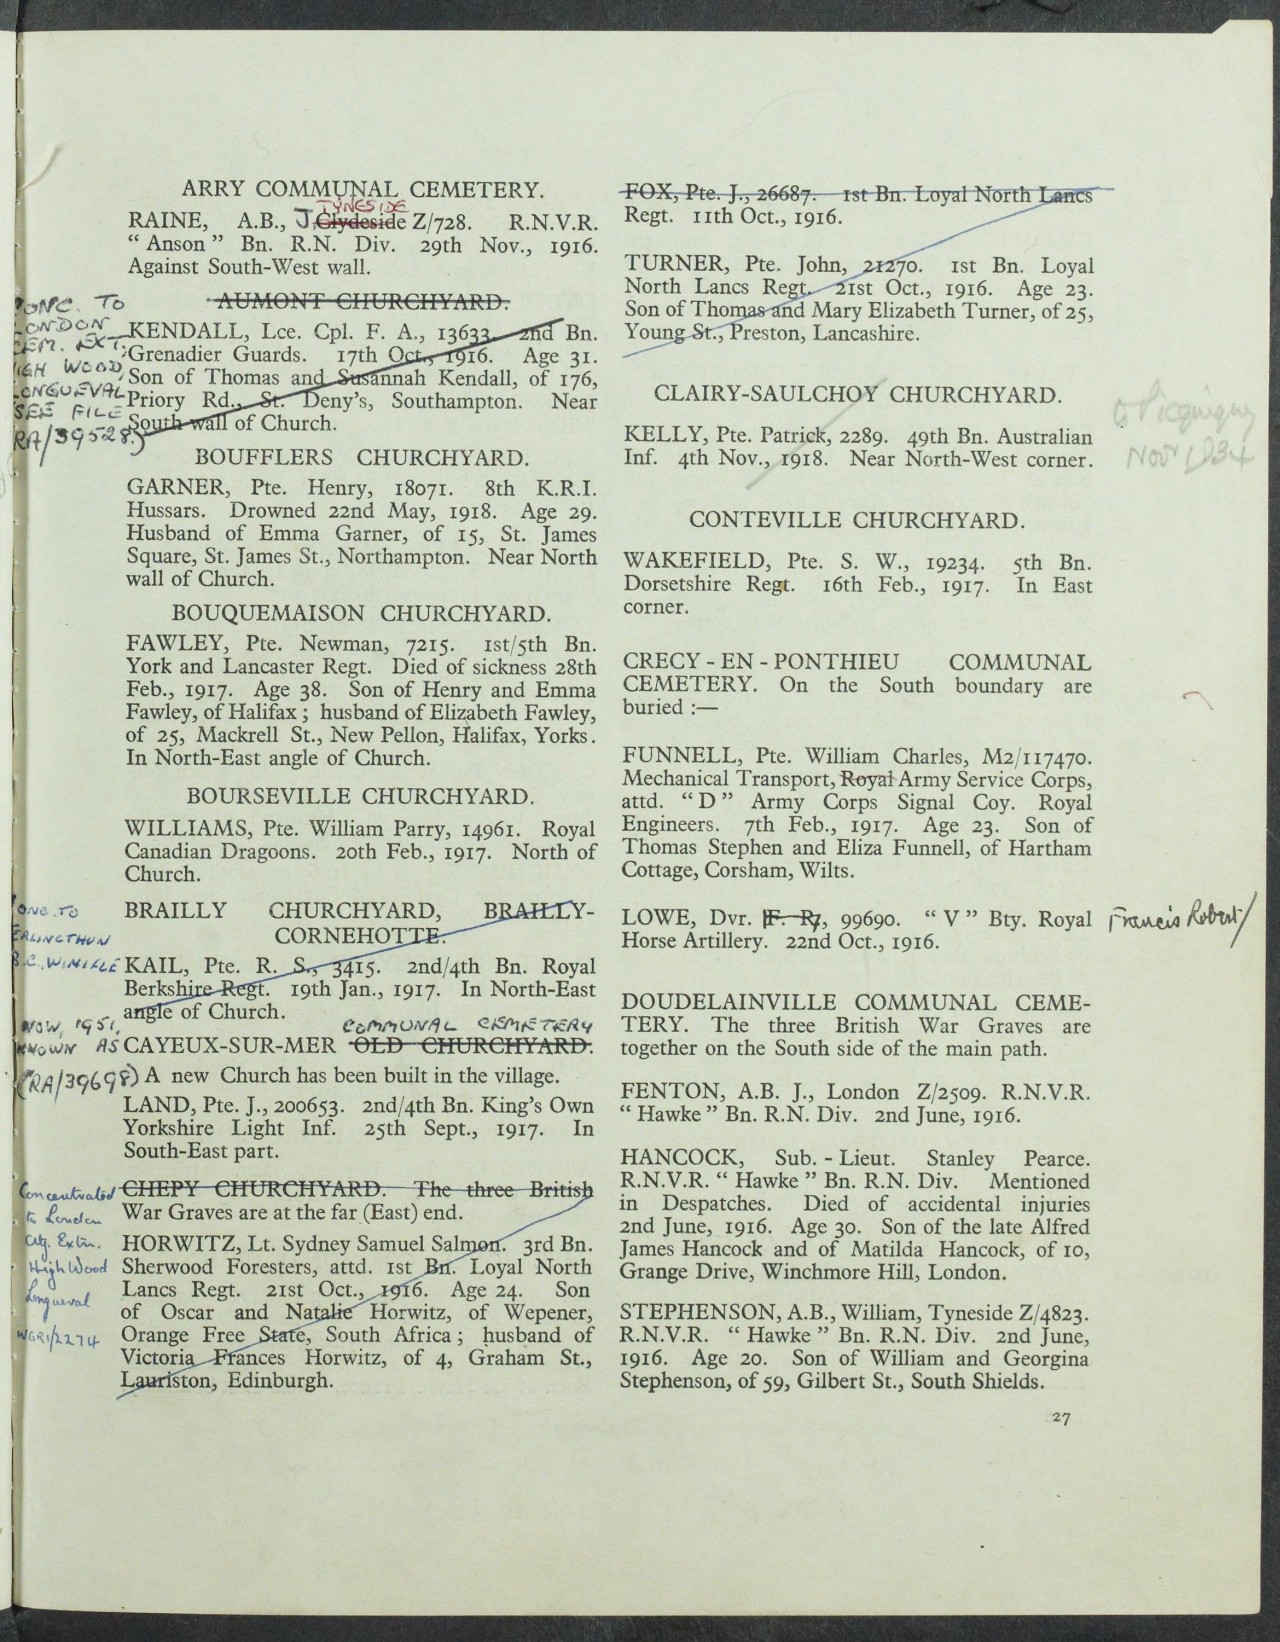 ARRY COMMUNAL CEMETERY.
TYNESIDE
RAINE, A.B., J. Clydeside Z/728. R.N.V.R.
“ Anson ” Bn. R.N. Div. 29th Nov., 1916.
Against South-West wall.
AUMONT CHURCHYARD.
CONC. TO
LONDON
CEM. EXT;
HIGH WOOD,
LONGUEVAL
SEE FILE
RA/39528.)
KENDALL, Lce. Cpl. F. A., 13633. 2nd Bn.
Grenadier Guards. 17th Oct., 1916. Age 31.
Son of Thomas and Susannah Kendall, of 176,
Priory Rd., St. Deny’s, Southampton. Near
South wall of Church.
BOUFFLERS CHURCHYARD.
GARNER, Pte. Henry, 18071. 8th K.R.I.
Hussars. Drowned 22nd May, 1918. Age 29.
Husband of Emma Garner, of 15, St. James
Square, St. James St., Northampton. Near North
wall of Church.
BOUQUEMAISON CHURCHYARD.
FAWLEY, Pte. Newman, 7215. 1st/5th Bn.
York and Lancaster Regt. Died of sickness 28th
Feb., 1917. Age 38. Son of Henry and Emma
Fawley, of Halifax ; husband of Elizabeth Fawley,
of 25, Mackrell St., New Pellon, Halifax, Yorks.
In North-East angle of Church.
BOURSEVILLE CHURCHYARD.
WILLIAMS, Pte. William Parry, 14961. Royal
Canadian Dragoons. 20th Feb., 1917. North of
Church.
CONC. TO
TERLINCTHUN
B.C., WIMILLE
BRAILLY CHURCHYARD, BRAILLY-
CORNEHOTTE.
KAIL, Pte. R. S., 3415. 2nd/4th Bn. Royal
Berkshire Regt. 19th Jan., 1917. In North-East
angle of Church.
NOW, 1951,
KNOWN AS
(RA/39698)
COMMUNAL CEMETERY
CAYEUX-SUR-MER OLD CHURCHYARD.
A new Church has been built in the village.
LAND, Pte. J., 200653. 2nd/4th Bn. King’s Own
Yorkshire Light Inf. 25th Sept., 1917. In
South-East part.
Concentrated
to London
Cty. Extn.
High Wood
Longueval
WGR1/2274
CHEPY CHURCHYARD. The three British
War Graves are at the far (East) end.
HORWITZ, Lt. Sydney Samuel Salmon. 3rd Bn.
Sherwood Foresters, attd. 1st Bn. Loyal North
Lancs Regt. 21st Oct., 1916. Age 24. Son
of Oscar and Natalie Horwitz, of Wepener,
Orange Free State, South Africa ; husband of
Victoria Frances Horwitz, of 4, Graham St.,
Lauriston, Edinburgh.
FOX, Pte. J., 26687. 1st Bn. Loyal North Lancs
Regt. 11th Oct., 1916.
TURNER, Pte. John, 21270. 1st Bn. Loyal
North Lancs Regt. 21st Oct., 1916. Age 23.
Son of Thomas and Mary Elizabeth Turner, of 25,
Young St., Preston, Lancashire.
CLAIRY-SAULCHOY CHURCHYARD.
Picquigny
Nov 1934
KELLY, Pte. Patrick, 2289. 49th Bn. Australian
Inf. 4th Nov., 1918. Near North-West corner.
CONTEVILLE CHURCHYARD.
WAKEFIELD, Pte. S. W., 19234. 5th Bn.
Dorsetshire Regt. 16th Feb., 1917. In East
corner.
CRECY - EN - PONTHIEU COMMUNAL
CEMETERY. On the South boundary are
buried :—
FUNNELL, Pte. William Charles, M2/117470.
Mechanical Transport, Royal Army Service Corps,
attd. “ D ” Army Corps Signal Coy. Royal
Engineers. 7th Feb., 1917. Age 23. Son of
Thomas Stephen and Eliza Funnell, of Hartham
Cottage, Corsham, Wilts.
LOWE, Dvr. F. R., 99690. “ V ” Bty. Royal Francis Robert/
Horse Artillery. 22nd Oct., 1916.
DOUDELAINVILLE COMMUNAL CEME-
TERY. The three British War Graves are
together on the South side of the main path.
FENTON, A.B. J., London Z/2509. R.N.V.R.
“ Hawke ” Bn. R.N. Div. 2nd June, 1916.
HANCOCK, Sub. - Lieut. Stanley Pearce.
R.N.V.R. “ Hawke ” Bn. R.N. Div. Mentioned
in Despatches. Died of accidental injuries
2nd June, 1916. Age 30. Son of the late Alfred
James Hancock and of Matilda Hancock, of 10,
Grange Drive, Winchmore Hill, London.
STEPHENSON, A.B., William, Tyneside Z/4823.
R.N.V.R. “ Hawke ” Bn. R.N. Div. 2nd June,
1916. Age 20. Son of William and Georgina
Stephenson, of 59, Gilbert St., South Shields.
27